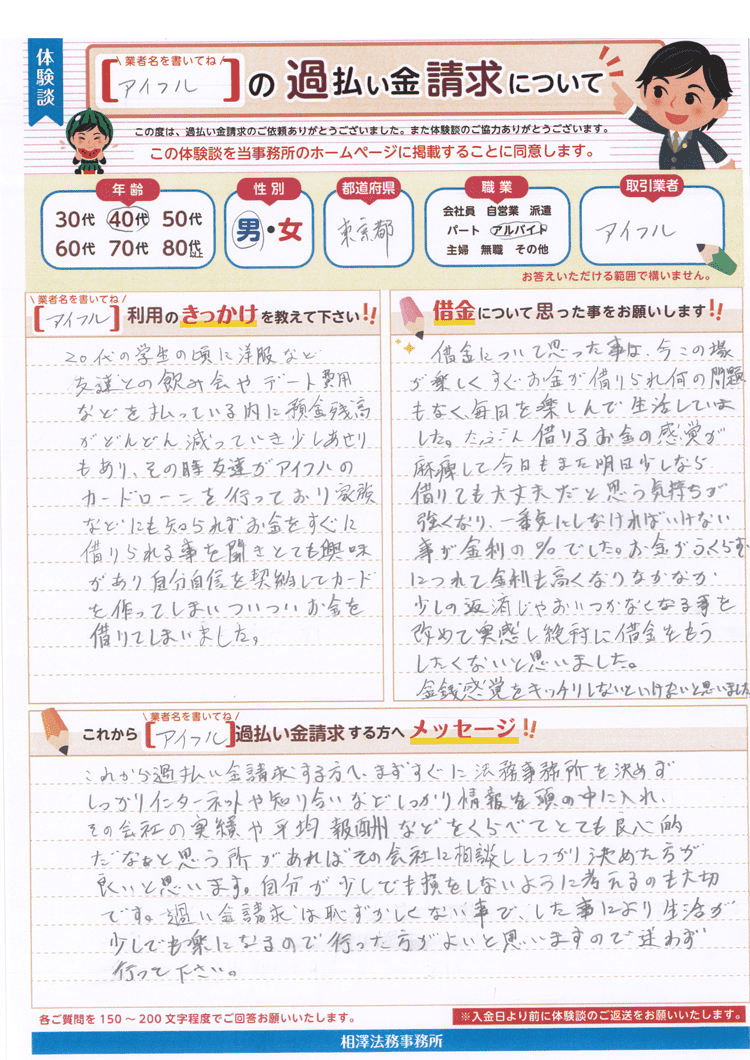 体験談
\ 業者名を書いてね /
[アイフル]の過払い金請求について
この度は、過払い金請求のご依頼ありがとうございました。また体験談のご協力ありがとうございます。
この体験談を当事務所のホームページに掲載することに同意します。
年齢
30代 40代 50代
60代 70代 80代以上
性別
男・女
都道府県
東京都
職業
会社員 自営業 派遣
パート アルバイト
主婦 無職 その他
取引業者
アイフル
お答えいただける範囲で構いません。
\ 業者名を書いてね /
[アイフル]利用のきっかけを教えて下さい!!
20代の学生の頃に洋服など
友達との飲み会やデート費用
などを払っている内に預金残高
がどんどん減っていき少しあせり
もあり、その時友達がアイフルの
カードローンを行っており家族
などにも知られずお金をすぐに
借りられる事を聞きとても興味
があり自分自信を契約してカード
を作ってしまいついついお金を
借りてしまいました。
借金について思った事をお願いします!!
借金について思った事は、今この場
が楽しくすぐお金が借りられ何の問題
もなく毎日を楽しんで生活していま
した。たぶん借りるお金の感覚が
麻痺して今日もまた明日少しなら
借りても大丈夫だと思う気持ちが
強くなり、一番気にしなければいけない
事が金利の%でした。お金がふくらむ
につれて金利も高くなりなかなか
少しの返済じゃおいつかなくなる事を
改めて実感し絶対に借金をもう
したくないと思いました。
金銭感覚をキッチリしないといけないと思いました
\ 業者名を書いてね /
これから[アイフル]過払い金請求する方へメッセージ!!
これから過払い金請求する方へ、まずすぐに法務事務所を決めず
しっかりインターネットや知り合いなどしっかり情報を頭の中に入れ、
その会社の実績や平均報酬などをくらべてとても良心的
だなぁと思う所があればその会社に相談ししっかり決めた方が
良いと思います。自分が少しでも損をしないように考えるのも大切
です。過い金請求は恥ずかしくない事で、した事により生活が
少しでも楽になるので行った方がよいと思いますので迷わず
行って下さい。
各ご質問を150~200文字程度でご回答お願いいたします。
※入金日より前に体験談のご返送をお願いいたします。
相澤法務事務所